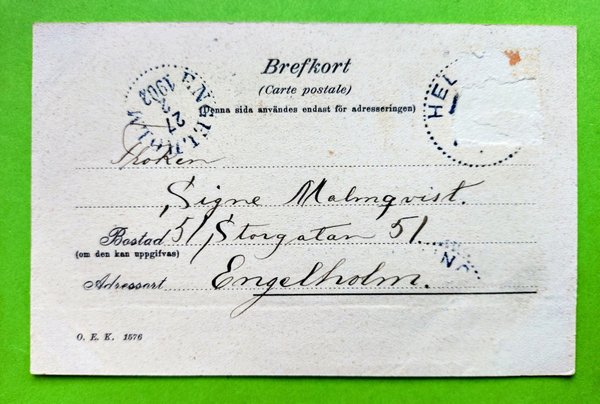 Brefkort
(Carte postale)
(Denna sida användes endast för adresseringen)
ENGELHOLM
27
1902
HEL
Fröken
Signe Malmqvist.
Bostad 51, Storgatan 51.
(om den kan uppgifvas)
Adressort Engelholm.
O. E. K. 1576